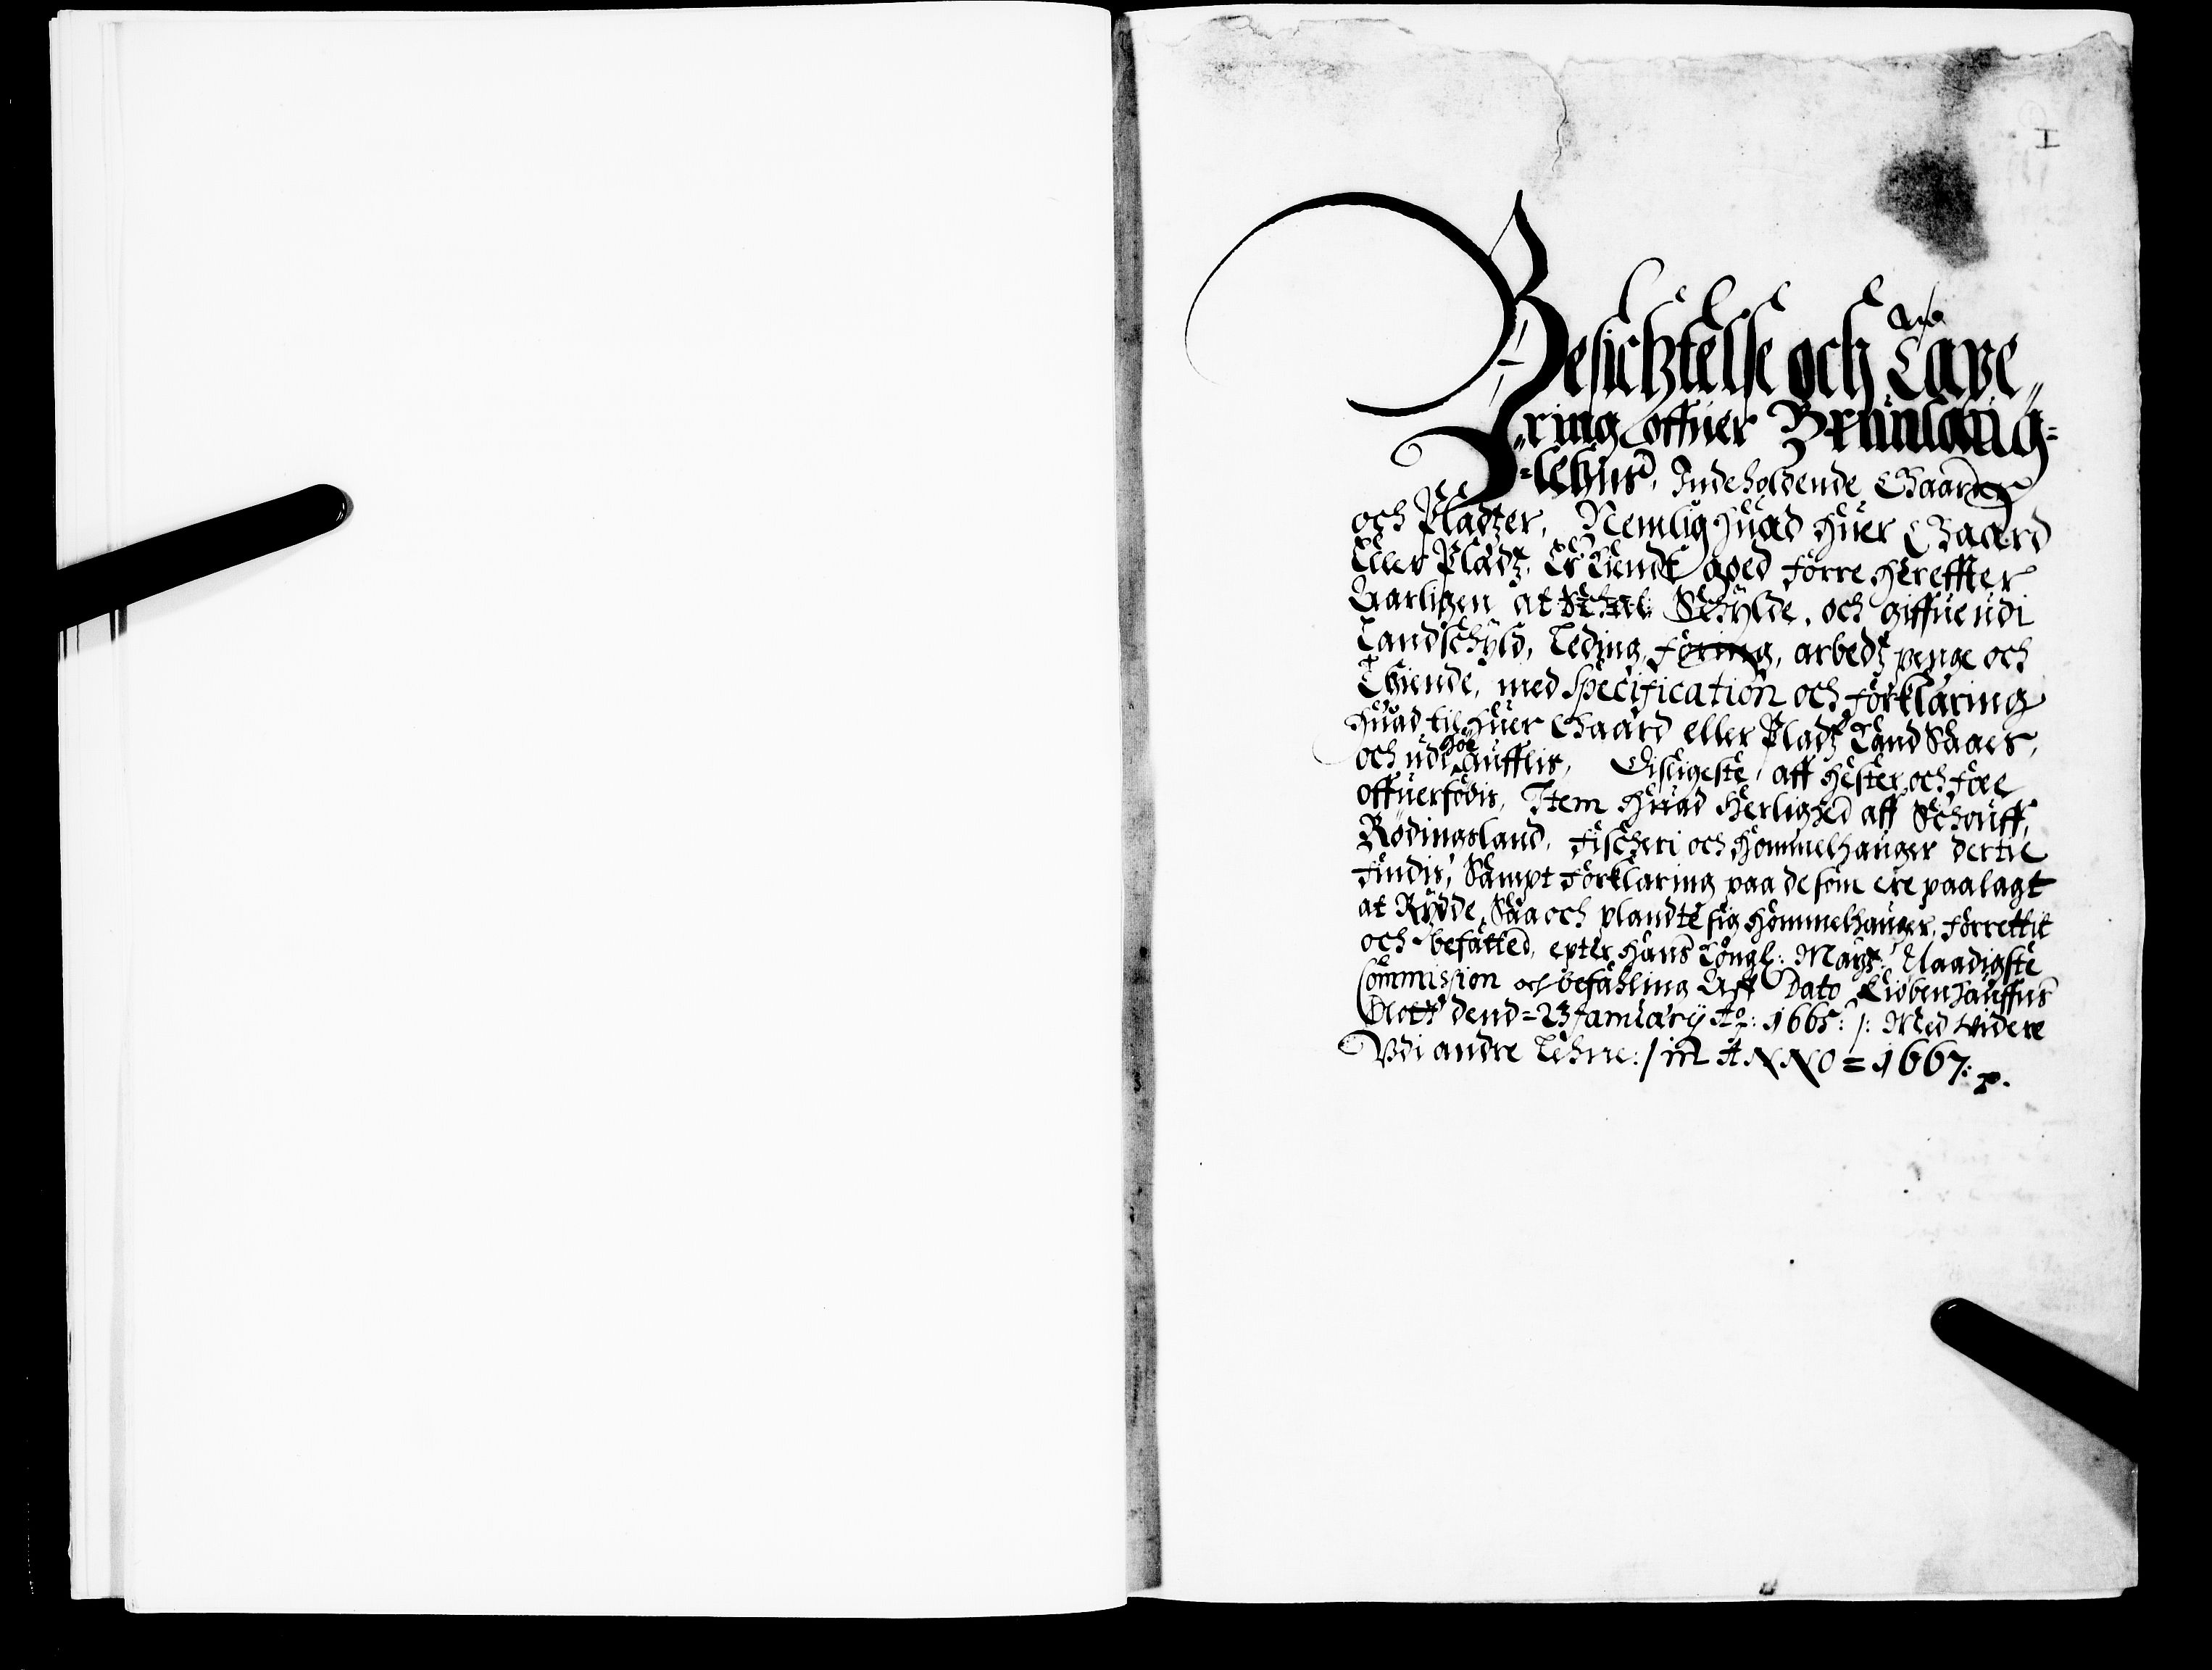 I
Besichtelse och Taxe„
„ring offuer Brunlaug=
=Lehns, Indeholdende Gaarder
och Pladtzer, Nemlig huad huer Gaard
Eller Pladtz, Er Kiendt goed forre herefter
Aarligen at Schal Schylde, och giffue udi
Landschyld, Leding, foring, arbedtz penge och
Thiende, med Specification och forklaring
huad til huer Gaard eller Pladtz Kand Saaes,
och udi høe aufflis, Disligeste, aff hester och føe
offuerfødis, Item huad Herlighed aff Schouff,
Rødingsland, Fischeri och hommelhauger dertil
findis, Sampt forklaring paa de som ere paalagt
at Rydde, Saa och plandte sig hommelhauger, forrettit
och befatted, epter Hans Kongl: Mayts: Naadigste
Commission och befahling Aff Dato Kiøbenhauffns
Slott dend = 23 January Ao: 1665: /: Med widere
Vdi andre Lehne: / in ANNO = 1667: p.